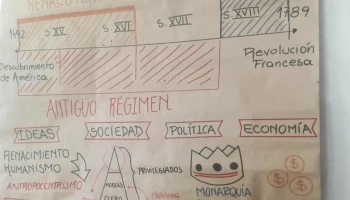 1492 S. XV S. XVI S. XVII S. XVIII 1789
Descubrimiento
de América
Revolución
Francesa
ANTIGUO RÉGIMEN
IDEAS SOCIEDAD POLÍTICA ECONOMÍA
RENACIMIENTO
HUMANISMO
ANTROPOCENTRISMO
PRIVILEGIADOS
NOBLES
CLERO
Nobleza
MONARQUÍA
$
$
$